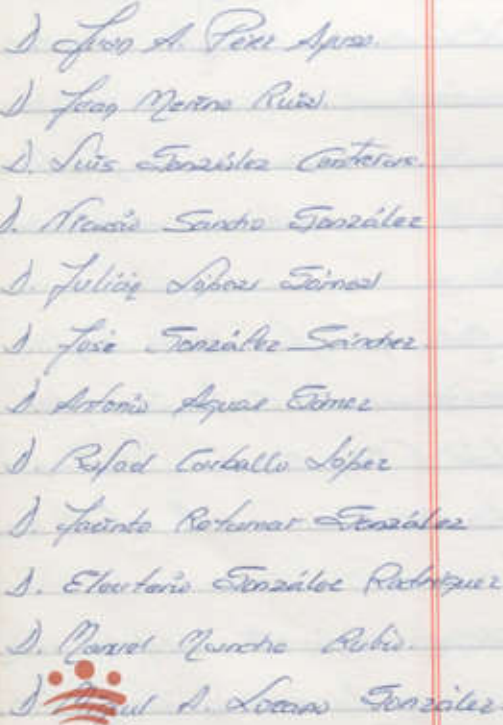 D. Juan A. Pérez
D. Juan Merino Ruiz.
D. Luis González Contreras.
D. Nicasio Sancho González
D. Julián López Gómez
D. José González Sánchez.
D. Antonio Aguar Gómez
D. Rafael Carballo López
D. Jacinto Retamar González
D. Eleuterio González Rodríguez
D. Manuel Muncho Rubio.
D. A. Lozano González